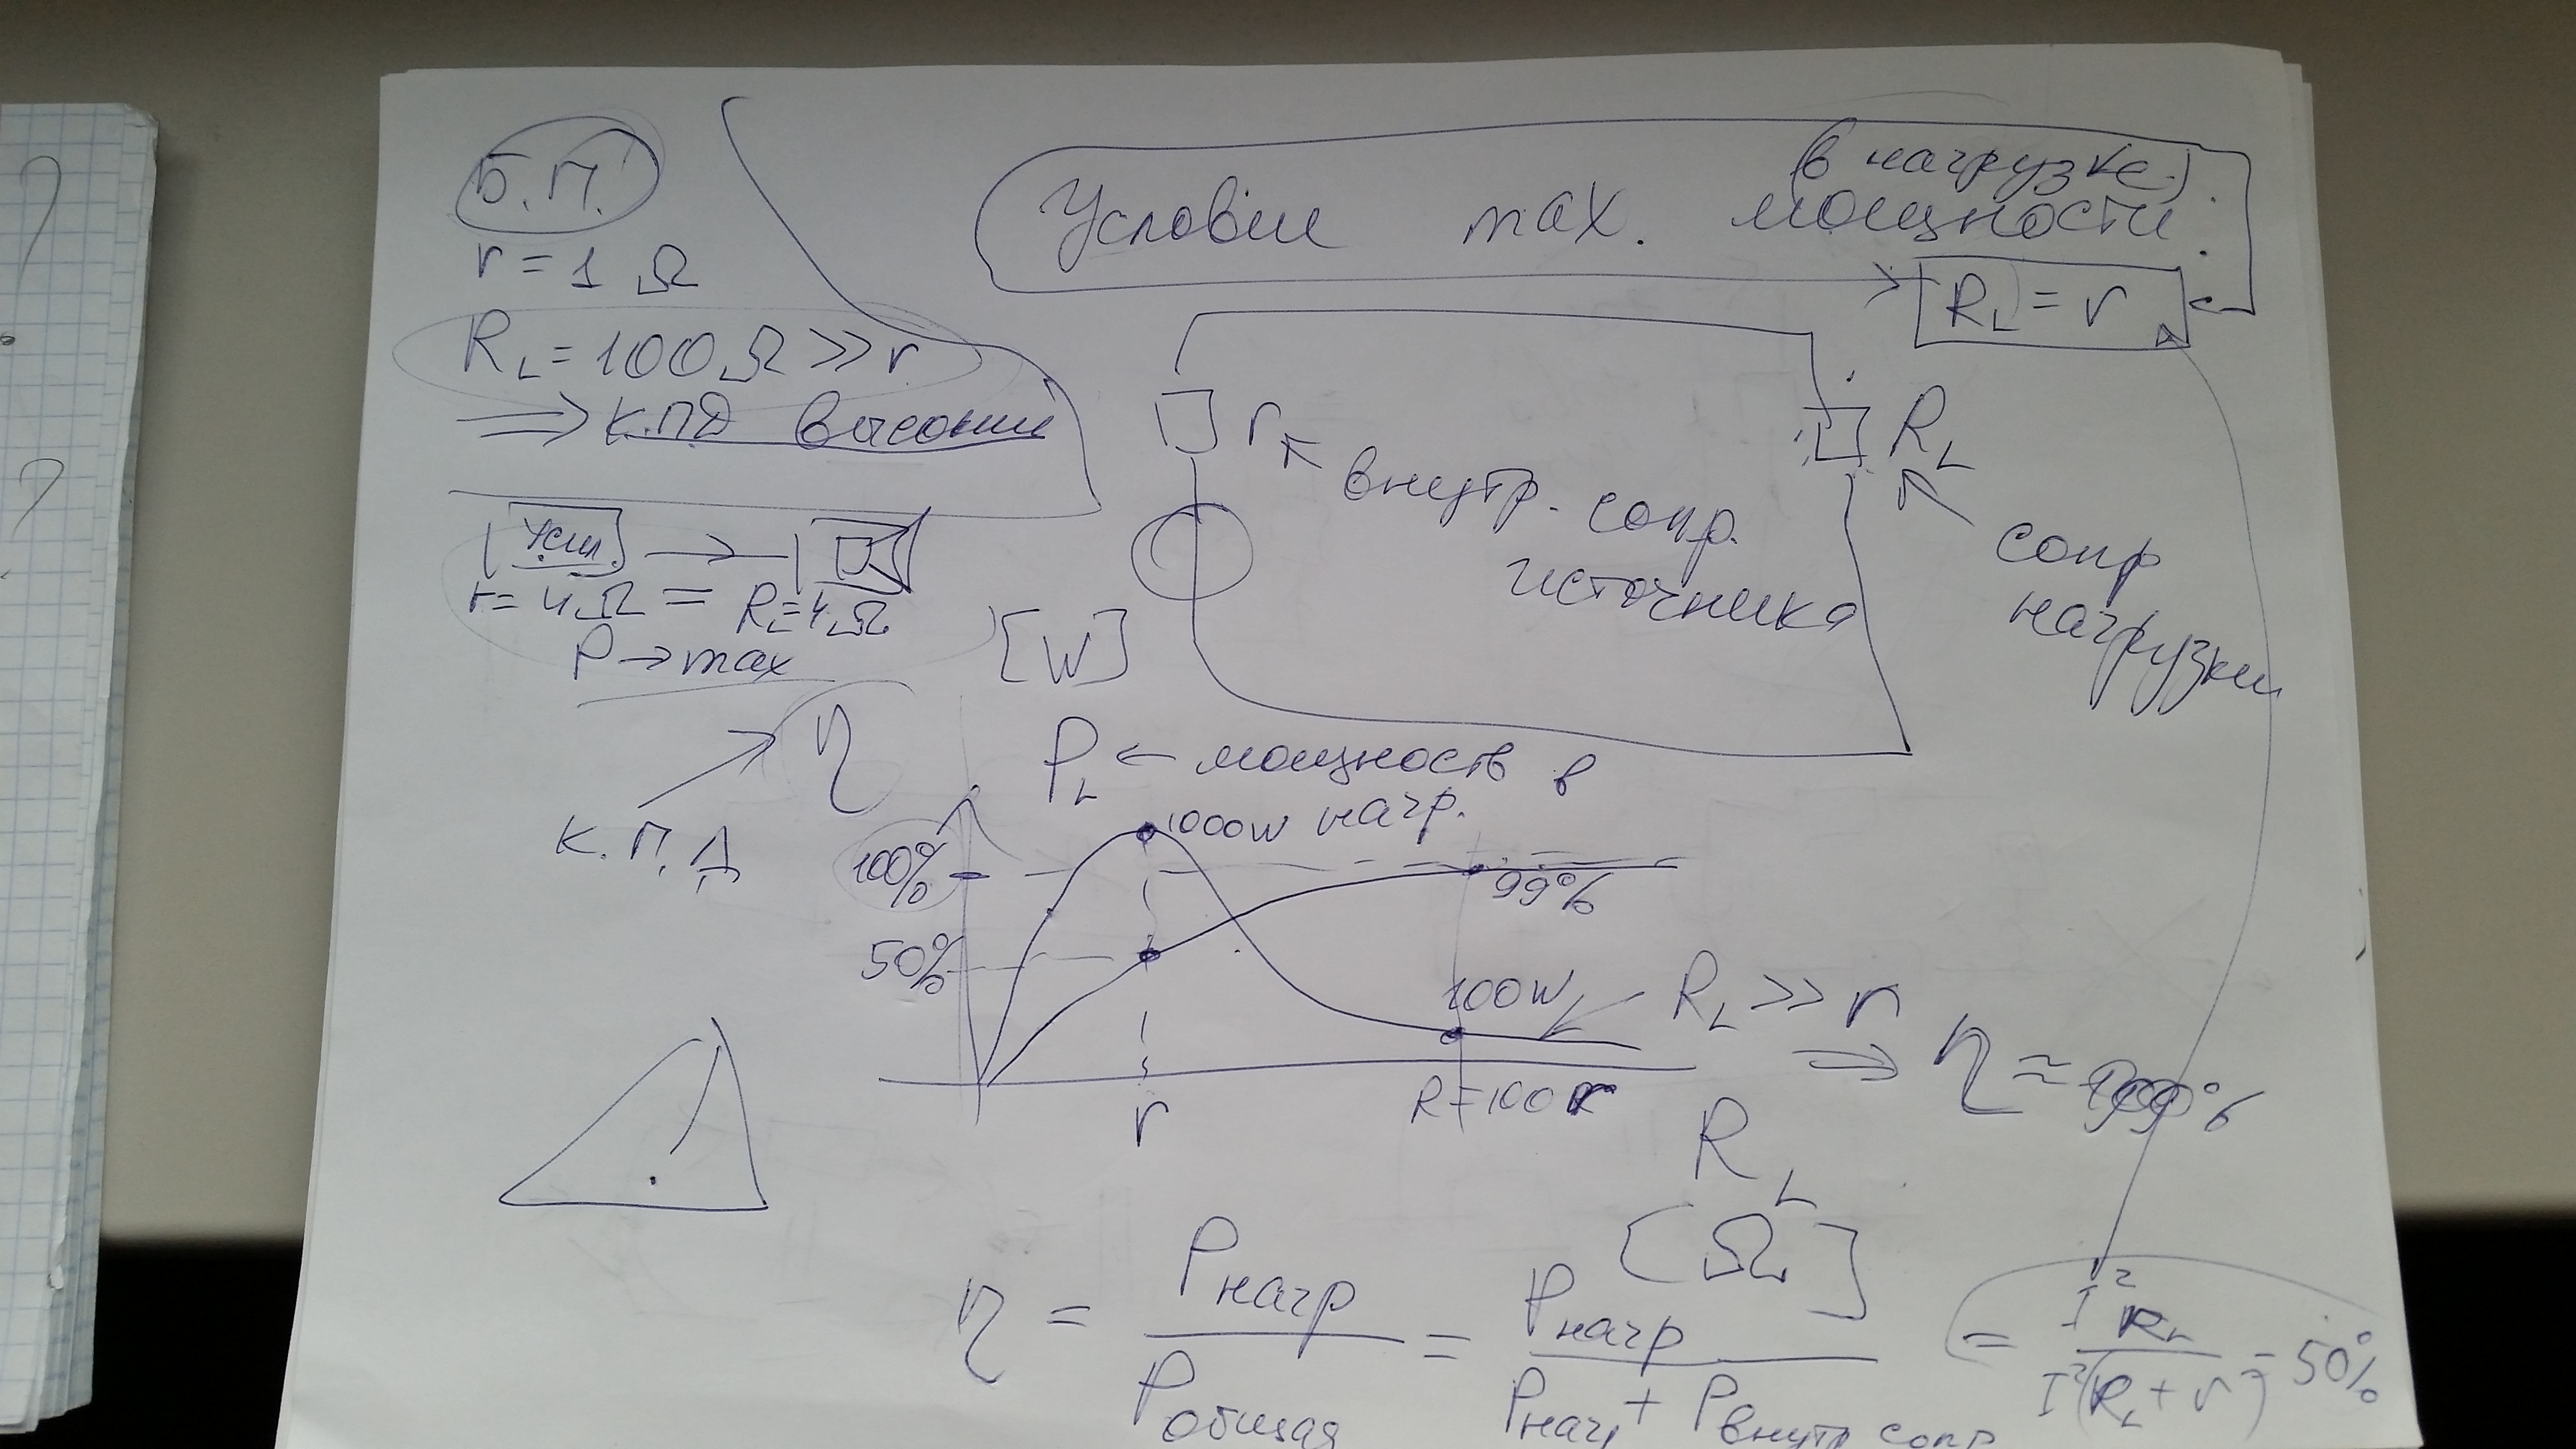 Б.П.
r = 1 Ω
R_L = 100 Ω >> r
⇒ К.П.Д высокий
Усил. →
r = 4 Ω = R_L = 4 Ω
P → max
(в нагрузке)
Условие max. мощности:
R_L = r
r
R_L
внутр. сопр.
источника
сопр
нагрузки
[W]
η
К.П.Д
P_L ← мощность в
нагр.
1000W
100%
50%
99%
100W
R_L >> r
⇒ η ≈ %
r
R = 100 r
R_L
[Ω]
!
η = P нагр / P общая = P нагр / P наг + P внутр сопр = I² R_L / I² (R_L + r) = 50%
?
?